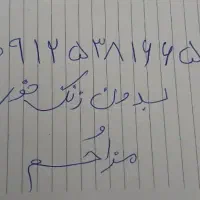 ۰۹۱۲۵۳۸۱۶۶۵
بدون زنگ خور
مزاحم